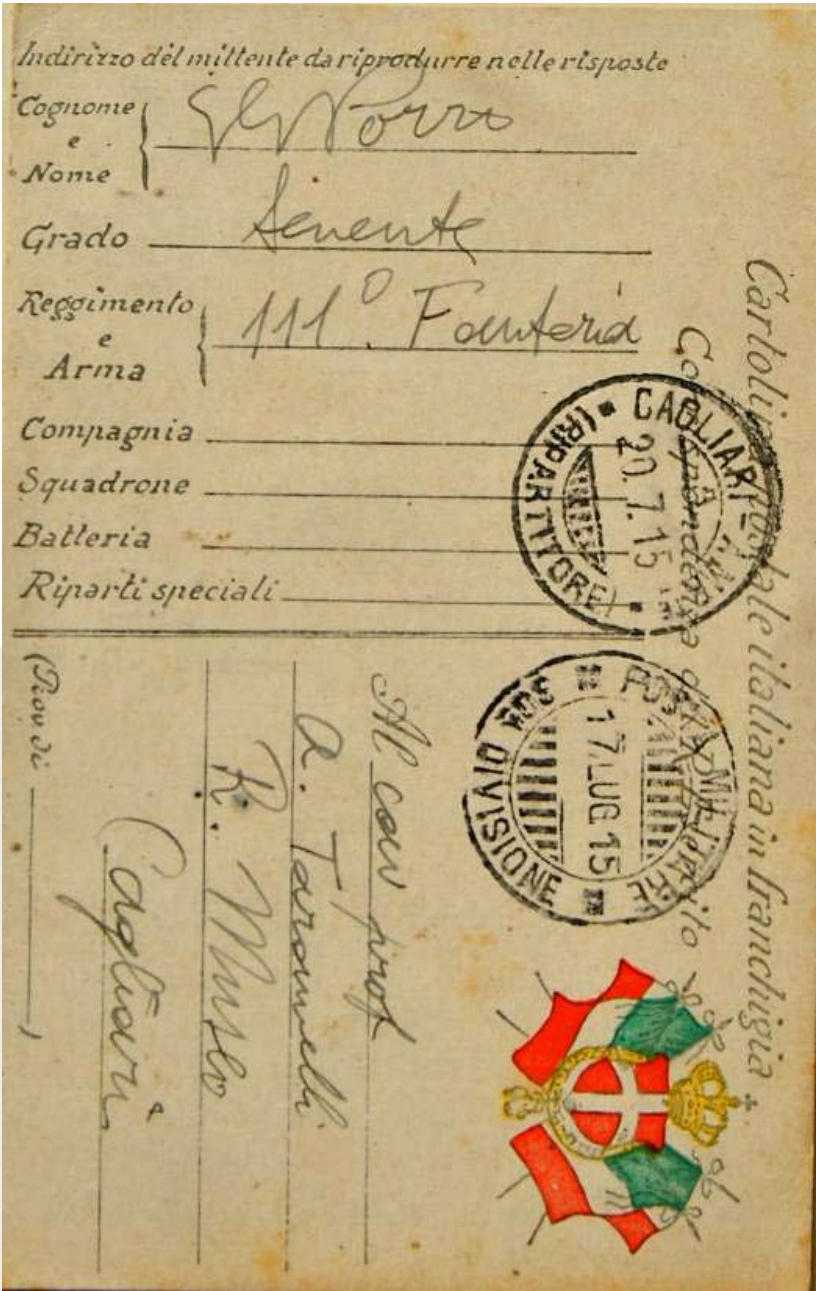 Indirizzo del mittente da riprodurre nelle risposte
Cognome
e
Nome
Porro
Grado Tenente
Reggimento
e
Arma
111° Fanteria
Compagnia
Squadrone
Batteria
Riparti speciali
Cartolina postale italiana in franchigia
Corrispondenza del R. Esercito
CAGLIARI
20.7.15
(RIPARTITORE)
POSTA MILITARE
17 LUG 15
DIVISIONE
Al cav prof
A. Taramelli
R. Museo
Cagliari
(Prov di )